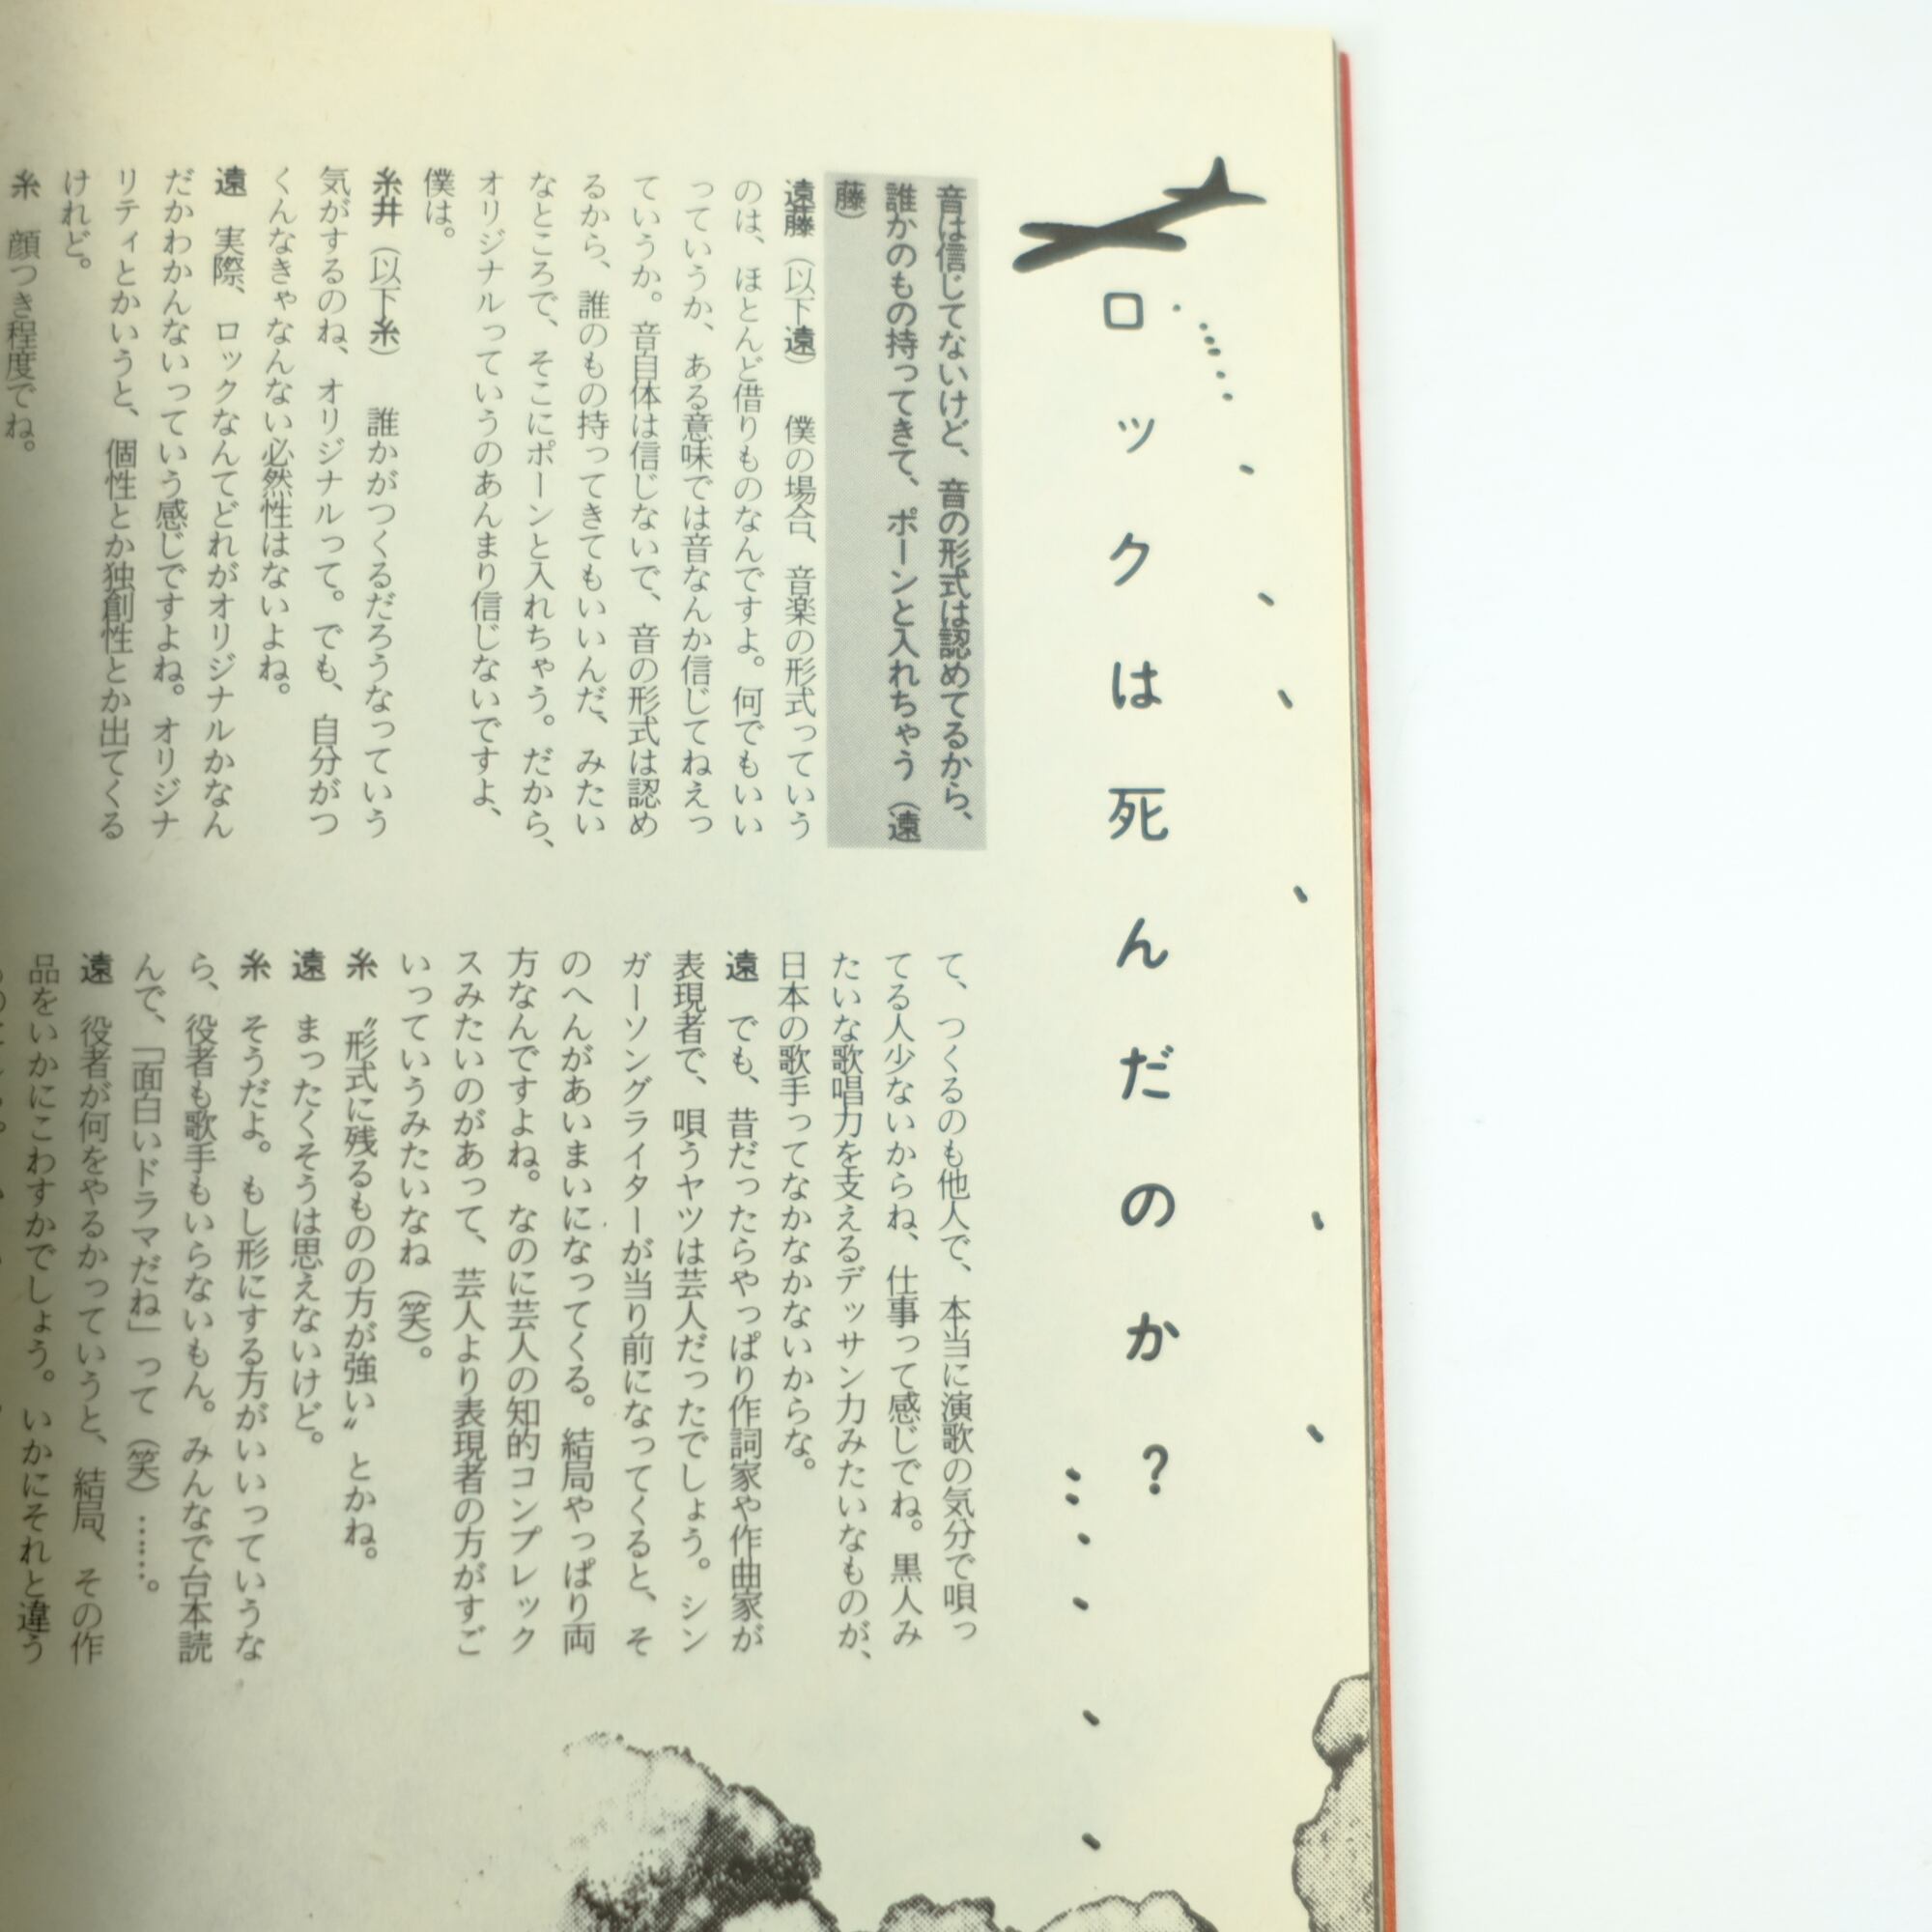 ロックは死んだのか?
音は信じてないけど、音の形式は認めてるから、
誰かのもの持ってきて、ポーンと入れちゃう(遠
藤)
遠藤(以下遠) 僕の場合、音楽の形式っていう
のは、ほとんど借りものなんですよ。何でもいい
っていうか、ある意味では音なんか信じてねえっ
ていうか。音自体は信じないで、音の形式は認め
るから、誰のもの持ってきてもいいんだ、みたい
なところで、そこにポーンと入れちゃう。だから、
オリジナルっていうのあんまり信じないですよ、
僕は。
糸井(以下糸) 誰かがつくるだろうなっていう
気がするのね、オリジナルって。でも、自分がつ
くんなきゃなんない必然性はないよね。
遠 実際、ロックなんてどれがオリジナルかなん
だかわかんないっていう感じですよね。オリジナ
リティとかいうと、個性とか独創性とか出てくる
けれど。
糸 顔つき程度でね。
て、つくるのも他人で、本当に演歌の気分で唄っ
てる人少ないからね、仕事って感じでね。黒人み
たいな歌唱力を支えるデッサン力みたいなものが、
日本の歌手ってなかなかないからな。
遠 でも、昔だったらやっぱり作詞家や作曲家が
表現者で、唄うヤツは芸人だったでしょう。シン
ガーソングライターが当り前になってくると、そ
のへんがあいまいになってくる。結局やっぱり両
方なんですよね。なのに芸人の知的コンプレック
スみたいのがあって、芸人より表現者の方がすご
いっていうみたいなね(笑)。
糸 〝形式に残るものの方が強い〟とかね。
遠 まったくそうは思えないけど。
糸 そうだよ。もし形にする方がいいっていうな
ら、役者も歌手もいらないもん。みんなで台本読
んで、「面白いドラマだね」って(笑)……。
遠 役者が何をやるかっていうと、結局、その作
品をいかにこわすかでしょう。いかにそれと違う